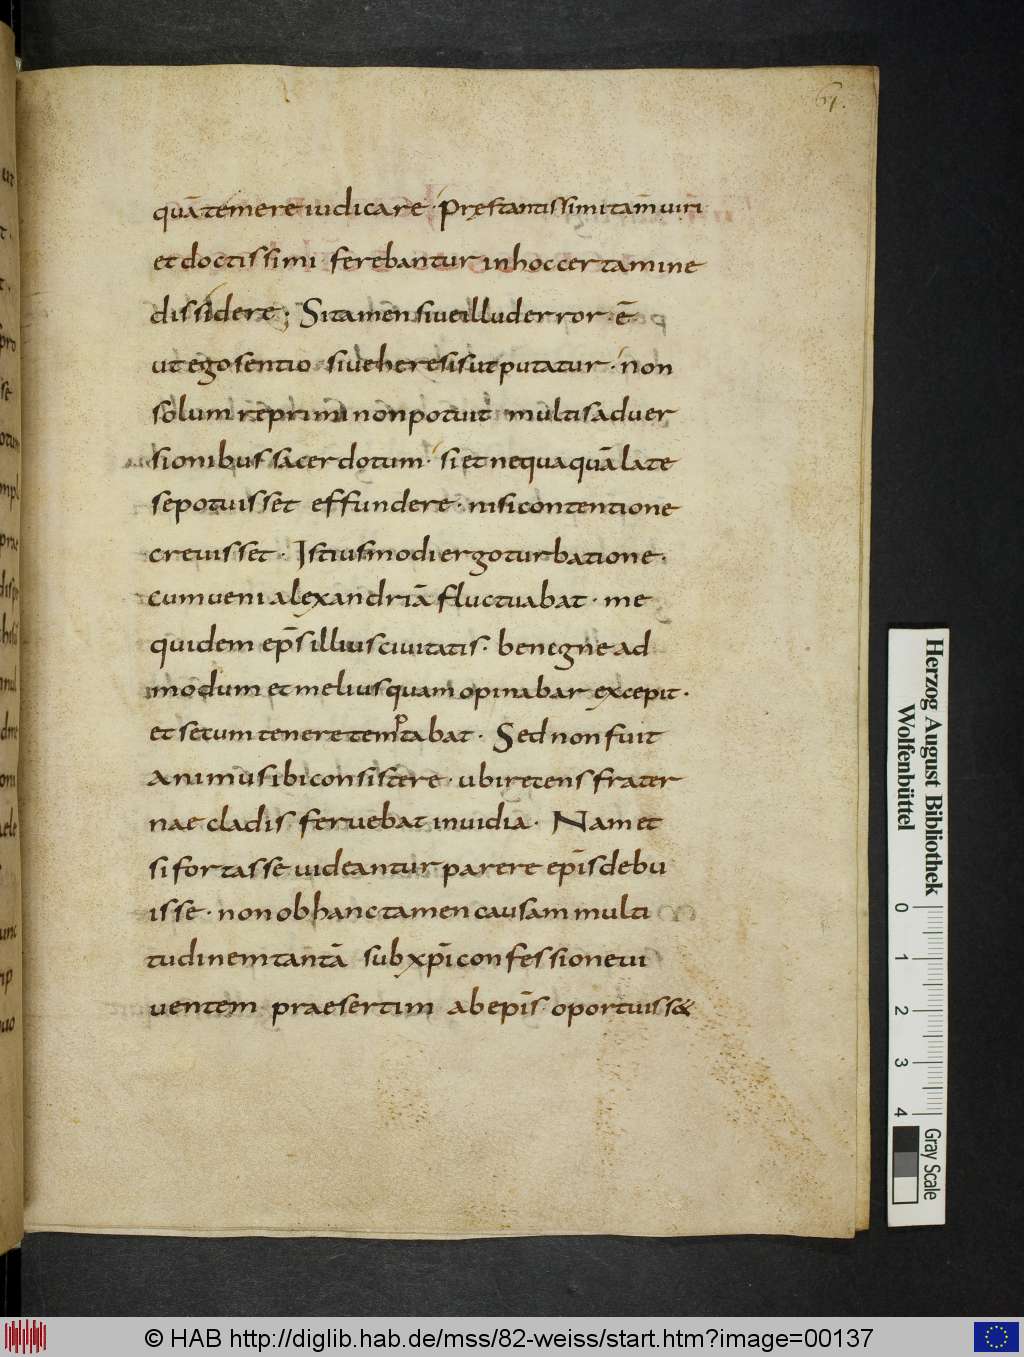 67.
quā temere iudicare · Pręstantissimi tam̄ uiri
et doctissimi ferebantur in hoc certamine
dissidere; Sitamen siue illud error · ē
ut ego sentio siue heresis ut putatur · non
solum reprimi non potuit multis aduer
sionibus sacerdotum · si et nequaquā late
se potuisset effundere · nisi contentione
creuisset · Istiusmodi ergo turbatione ·
cum ueni alexandriā fluctuabat · me
quidem ep̄s illius ciuitatis · benegne ad
modum et melius quam opinabar excepit ·
et secum tenere temptabat · Sed non fuit
animus ibi consistere · ubi recens frater
nae cladis feruebat inuidia · Nam et
si fortasse uideantur parere ep̄is debu
isse · non ob hanc tamen causam multi
tudinem tantā sub xp̄i confessione ui
uentem praesertim ab ep̄is · oportuiss&
Herzog August Bibliothek
Wolfenbüttel
0 1 2 3 4
Gray Scale
© HAB http://diglib.hab.de/mss/82-weiss/start.htm?image=00137